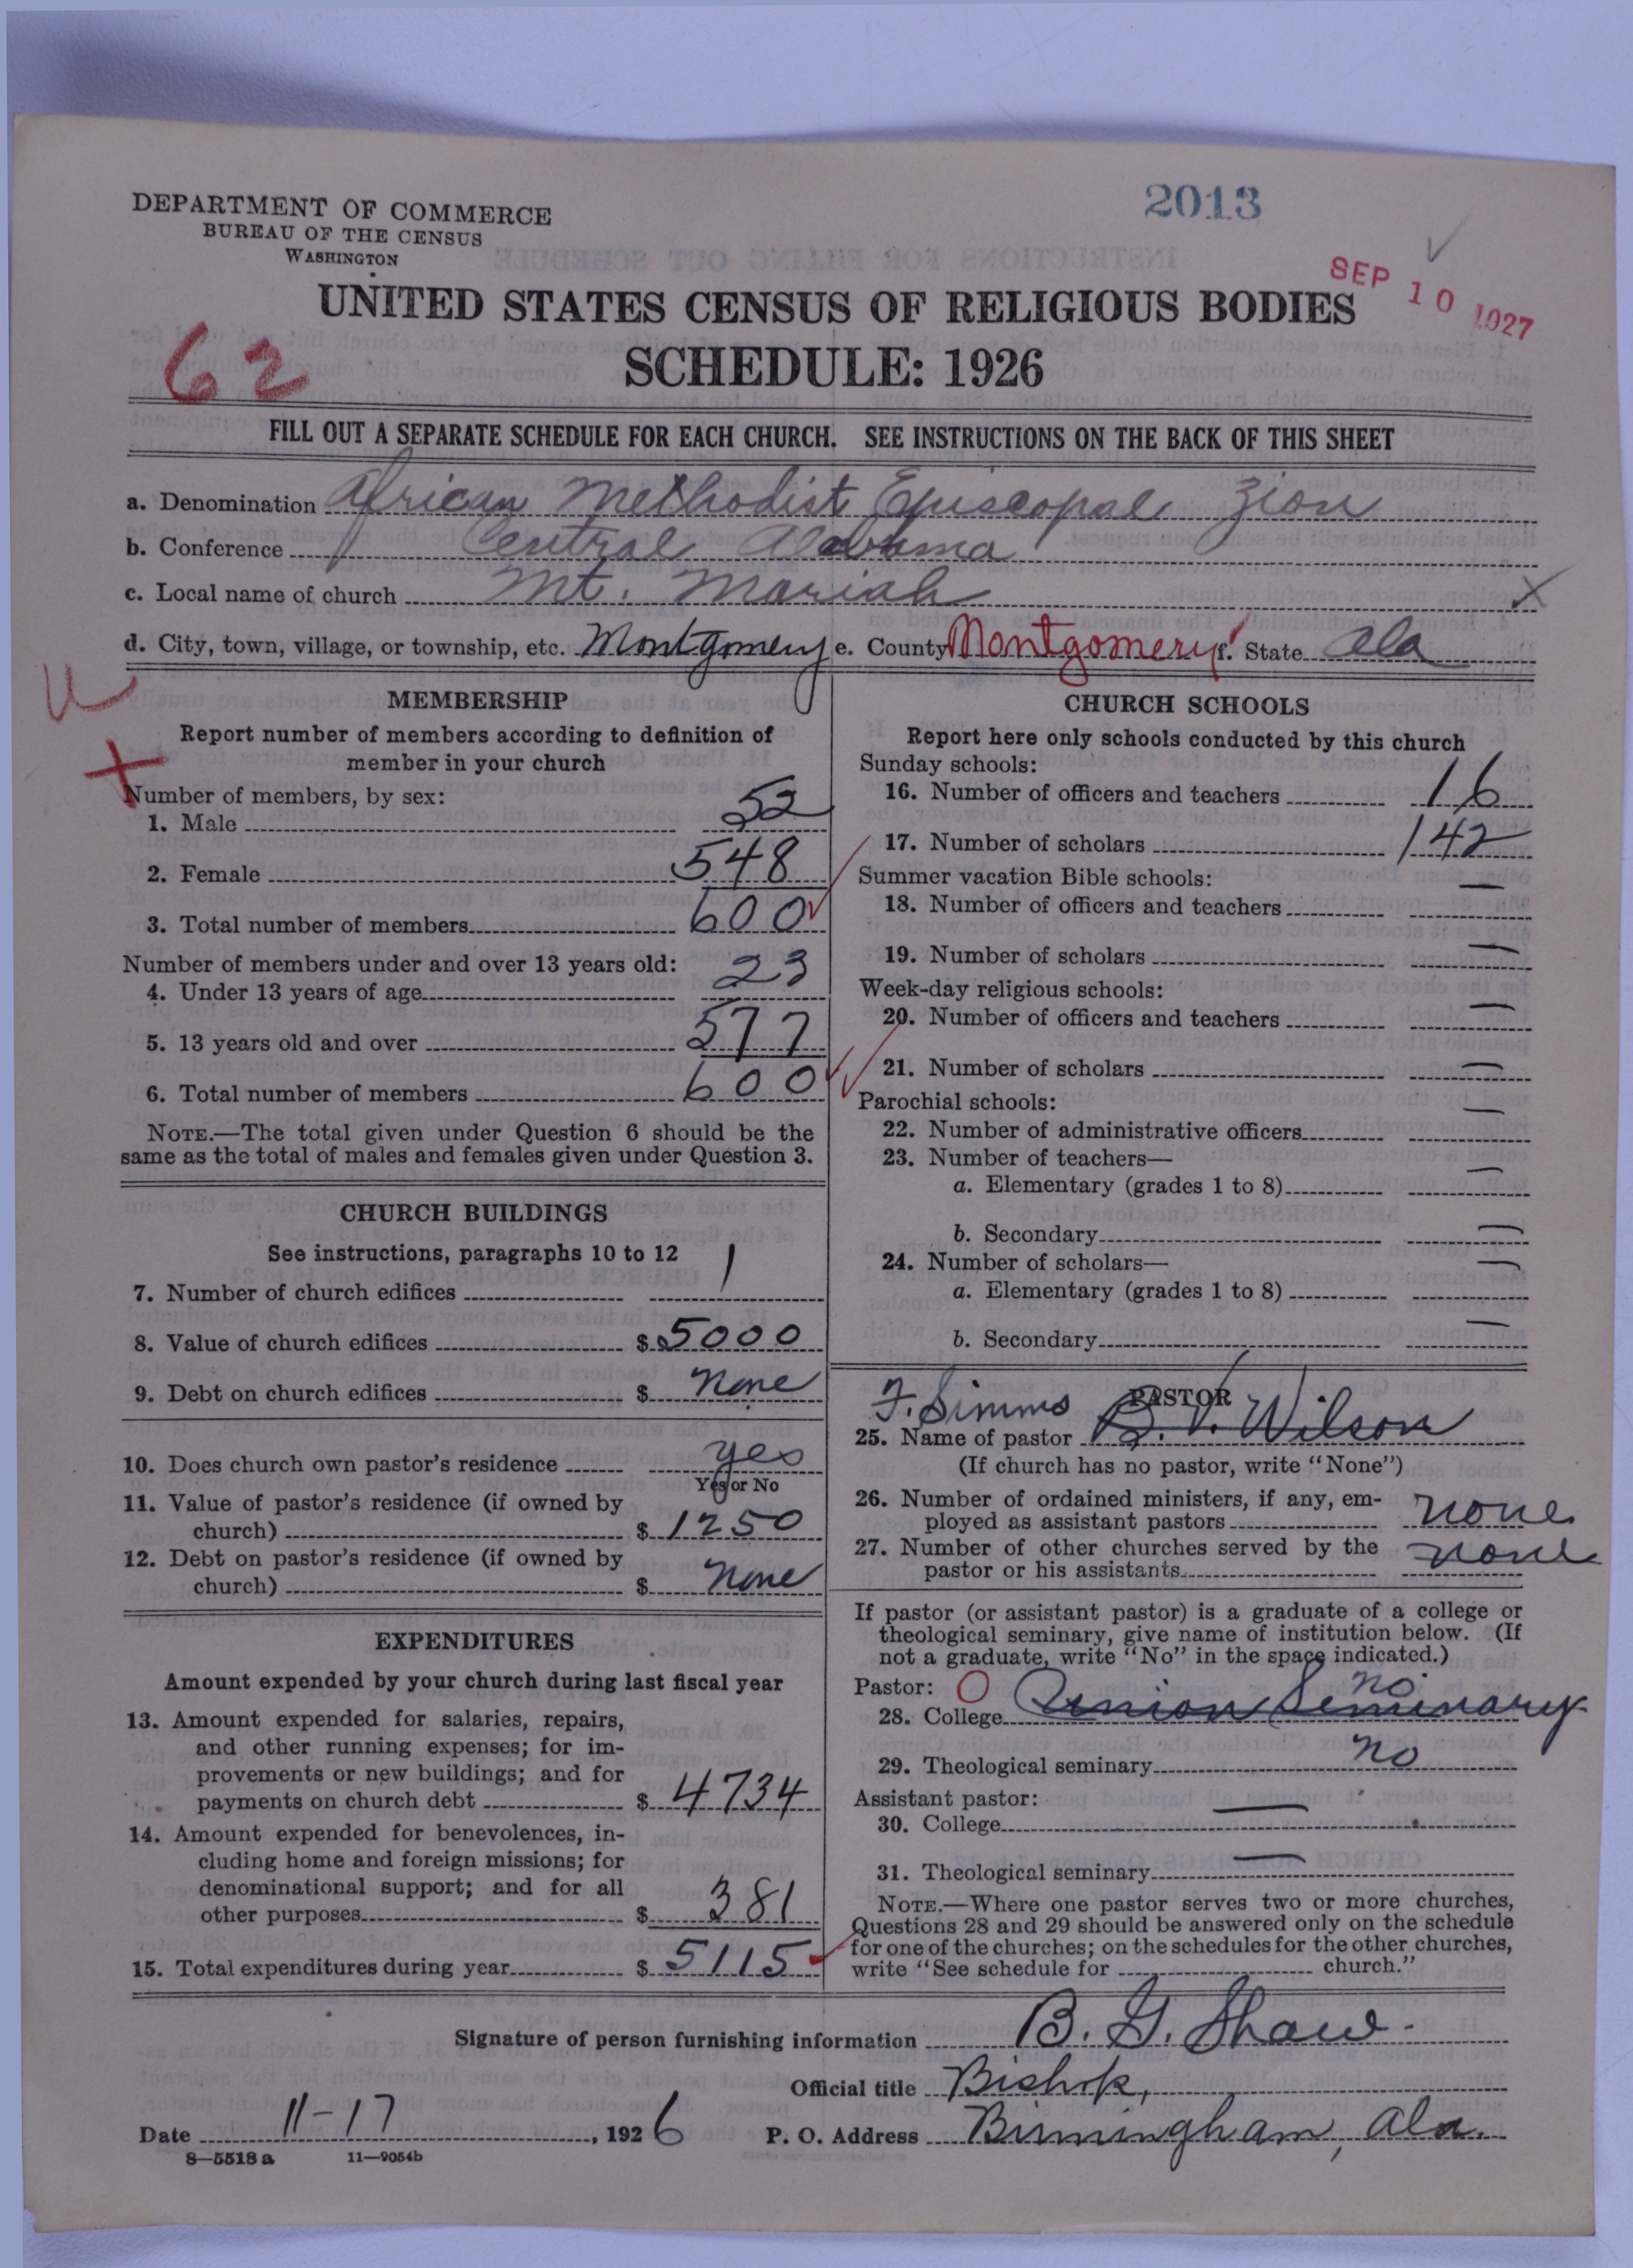 2013
DEPARTMENT OF COMMERCE
BUREAU OF THE CENSUS
WASHINGTON
SEP 10 1927
UNITED STATES CENSUS OF RELIGIOUS BODIES
62
SCHEDULE: 1926
FILL OUT A SEPARATE SCHEDULE FOR EACH CHURCH. SEE INSTRUCTIONS ON THE BACK OF THIS SHEET
a. Denomination African Methodist Episcopal Zion
b. Conference Central Alabama
c. Local name of church Mt. Mariah
d. City, town, village, or township, etc. Montgomery e. County Montgomery f. State Ala
MEMBERSHIP
Report number of members according to definition of
member in your church
Number of members, by sex:
1. Male 52
2. Female 548
3. Total number of members 600
Number of members under and over 13 years old:
4. Under 13 years of age 23
5. 13 years old and over 577
6. Total number of members 600
NOTE.—The total given under Question 6 should be the
same as the total of males and females given under Question 3.
CHURCH BUILDINGS
See instructions, paragraphs 10 to 12
7. Number of church edifices 1
8. Value of church edifices $ 5000
9. Debt on church edifices $ None
10. Does church own pastor's residence yes
Yes or No
11. Value of pastor's residence (if owned by
church) $ 1250
12. Debt on pastor's residence (if owned by
church) $ None
EXPENDITURES
Amount expended by your church during last fiscal year
13. Amount expended for salaries, repairs,
and other running expenses; for im-
provements or new buildings; and for
payments on church debt $ 4734
14. Amount expended for benevolences, in-
cluding home and foreign missions; for
denominational support; and for all
other purposes $ 381
15. Total expenditures during year $ 5115
CHURCH SCHOOLS
Report here only schools conducted by this church
Sunday schools:
16. Number of officers and teachers 16
17. Number of scholars 142
Summer vacation Bible schools:
18. Number of officers and teachers —
19. Number of scholars —
Week-day religious schools:
20. Number of officers and teachers —
21. Number of scholars —
Parochial schools:
22. Number of administrative officers —
23. Number of teachers—
a. Elementary (grades 1 to 8) —
b. Secondary —
24. Number of scholars—
a. Elementary (grades 1 to 8) —
b. Secondary —
PASTOR
F. Simms
25. Name of pastor B. V. Wilson
(If church has no pastor, write "None")
26. Number of ordained ministers, if any, em-
ployed as assistant pastors none
27. Number of other churches served by the
pastor or his assistants none
If pastor (or assistant pastor) is a graduate of a college or
theological seminary, give name of institution below. (If
not a graduate, write "No" in the space indicated.)
Pastor: no
28. College Seminary
29. Theological seminary no
Assistant pastor:
30. College —
31. Theological seminary —
NOTE.—Where one pastor serves two or more churches,
Questions 28 and 29 should be answered only on the schedule
for one of the churches; on the schedules for the other churches,
write "See schedule for church."
Signature of person furnishing information B. G. Shaw
Official title Bishop,
Date 11-17, 1926 P. O. Address Birmingham, Ala.
8—5518a 11—9054b